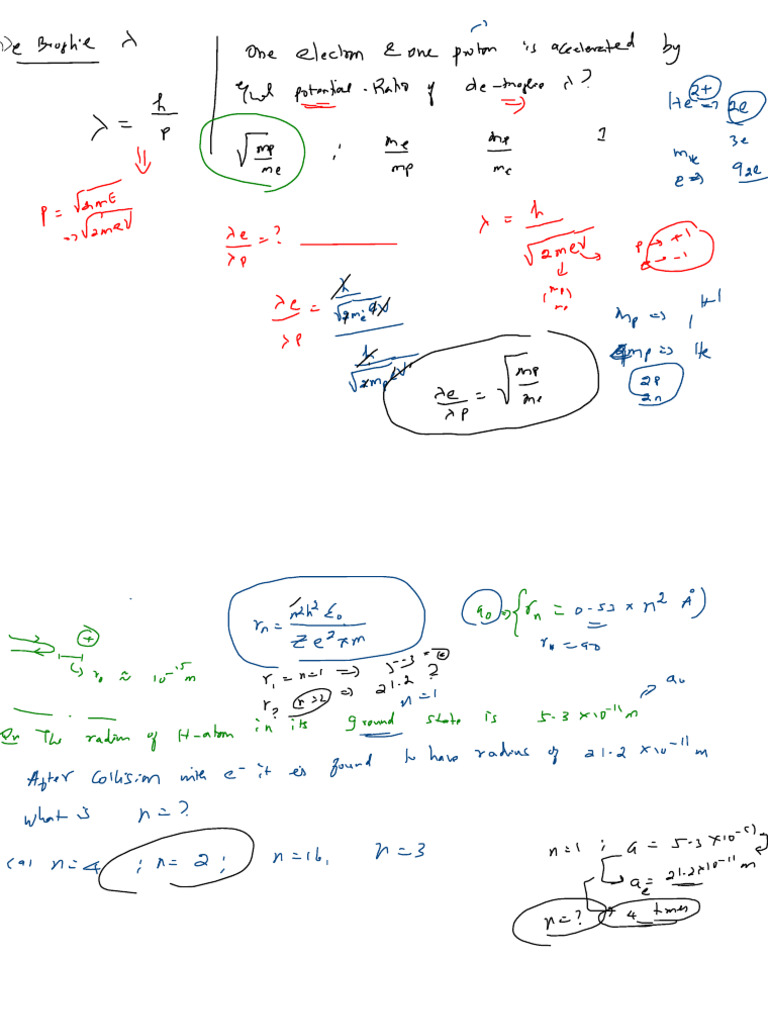 De Broglie λ
λ = h / P
P = √2mE
=> √2meV
One electron & one proton is accelerated by
equal potential. Ratio of de-broglie λ?
√(mp/me) ; me/mp mp/me 1
He 2+ => 2e
3e
e => 92e
λe/λp = ?
λ = h / √2meV
p → +1
e → -1
λe/λp = (h / √2me eV) / (h / √2mp eV)
mp => 1 H^1
4mp => He
2P
2n
λe/λp = √(mp/me)
rn = n²h²ε0 / Ze²πm
a0 => {rn = 0.53 × n² Å)
rn = a0
+
r0 ≈ 10^-15 m
r1 = n=1 => 5.3
r? n=2 => 21.2 ?
n=1
a0
Qn The radius of H-atom in its ground state is 5.3×10^-11 m
After Collision with e- it is found to have radius of 21.2 ×10^-11 m
what is n=?
(a) n=4 ; n=2 ; n=16, n=3
n=1 ; a = 5.3×10^-11
ae = 21.2×10^-11 m
n=? 4 times